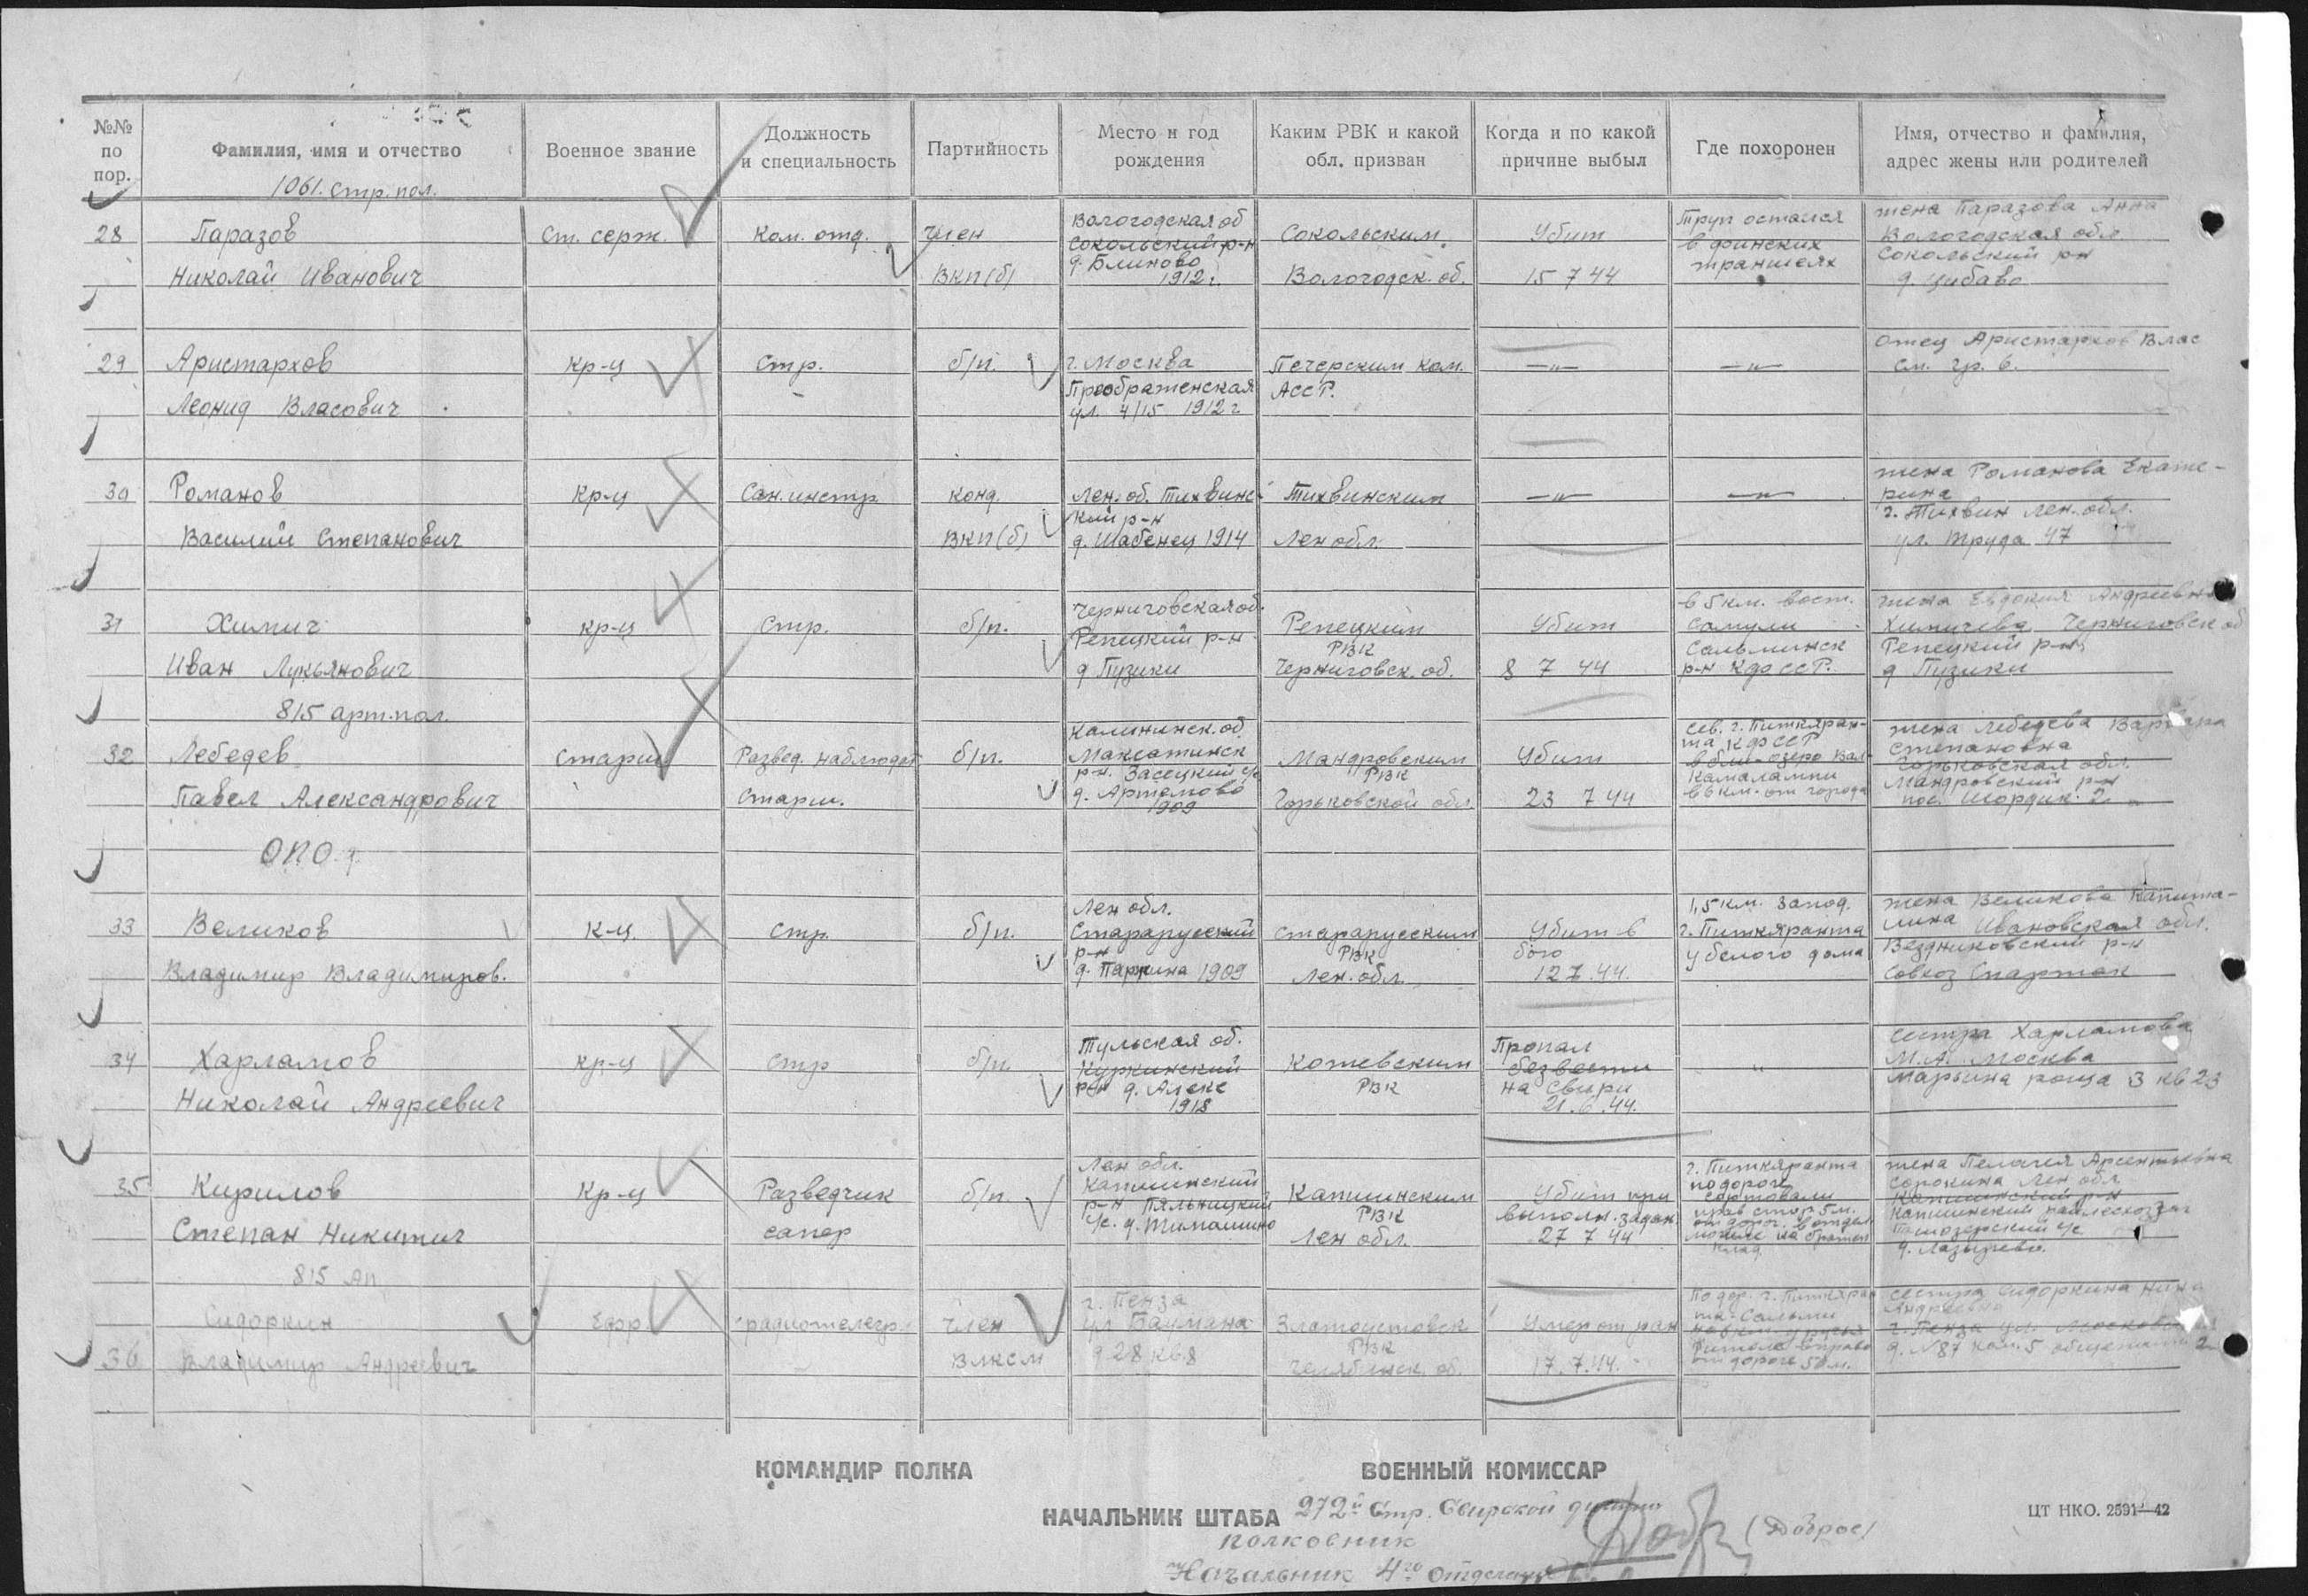 №№ по пор.
Фамилия, имя и отчество
Военное звание
Должность и специальность
Партийность
Место и год рождения
Каким РВК и какой обл. призван
Когда и по какой причине выбыл
Где похоронен
Имя, отчество и фамилия, адрес жены или родителей
1061. стр. пол.
28
Паразов
Николай Иванович
Ст. серж.
Ком. отд.
Член
ВКП(б)
Вологодская об
Сокольский р-н
д. Блиново
1912 г.
Сокольским
Вологодск. об.
Убит
15 7 44
Труп остался
в финских
траншеях
жена Паразова Анна
Вологодская обл
Сокольский рн
д. Цибаво
29
Аристархов
Леонид Власович
Кр-ц
Стр.
б/п.
г. Москва
Преображенская
ул. 4/15 1912 г
Печерским Ком.
АССР.
—"—
—"—
Отец Аристархов Влас
см. гр. 6.
30
Романов
Василий Степанович
Кр-ц
Сан. инстр.
Конд.
ВКП(б)
Лен. об. Тихвинс-
кий р-н
д. Шабенец 1914
Тихвинским
Лен обл.
—"—
—"—
жена Романова Екате-
рина
г. Тихвин Лен. обл.
ул. Труда 47
31
Химич
Иван Лукьянович
кр-ц
Стр.
б/п.
Черниговская об.
Репецкий р-н
д Пузики
Репецким
РВК
Черниговск. об.
Убит
8 7 44
в 5 км. вост.
Самули
Сальминск
р-н КФССР.
жена Евдокия Андреевна
Химичева Черниговск об
Репецкий р-н
д Пузики
815 арт. пол.
32
Лебедев
Павел Александрович
Старш.
Развед. наблюдат
старш.
б/п.
Калининск. об.
Максатинск
р-н. Засецкий с/с
д. Артемово
1909
Мандровским
РВК
Горьковской обл.
Убит
23 7 44
Сев. г. Питкяран-
та КФССР
в 6км. озеро Вал-
камалампи
в 6 км. от города
жена Лебедева Варвара
Степановна
Горьковская обл.
Мандровский р-н
пос.
ОПО
33
Великов
Владимир Владимиров.
К-ц.
Стр.
б/п.
Лен обл.
Старарусский
р-н
д. Паркина 1909
Старарусским
РВК
Лен. обл
Убит в
бою
12 7. 44.
1,5 км. запад.
г. Питкяранта
у белого дома
жена Великова Капита-
лина Ивановская обл.
Вездниковский р-н
Совхоз Спартак
34
Харламов
Николай Андреевич
кр-ц
стр
б/п.
Тульская об.
Куркинский
р-н д. Алекс
1918
Котевским
РВК
Пропал
без вести
на Свири
21. 6. 44.
"
сестра Харламова
М. А. Москва
Марьина роща 3 кв 23
35
Кирилов
Степан Никитич
Кр-ц
Разведчик
сапер
б/п.
Лен обл.
Капшинский
р-н Пяльницкий
с/с. д. Тимошино
Капшинским
РВК
Лен обл.
Убит при
выполн. задан.
27 7 44
г. Питкяранта
по дороге
Сортовали
прав стор 5 м.
от дорог. в отдел.
могиле на братск
клад.
жена Пелагея Арсентьевна
Сорокина Лен обл
Капшинский р-н
Капшинский
с/с
д. Лазырево.
815 ап
36
Сидоркин
Владимир Андреевич
Ефр.
радиотелегр.
Член
ВЛКСМ
г. Пенза
ул Баумана
д 28 кв. 8
Златоустовск
РВК
Челябинск. об.
Умер от ран
17. 7. 44.
По дор. г. Питкяран
та-Сальми
вправо
от дороги 50 м.
сестра Сидоркина Нина
Андреевна
г. Пенза ул. Московская
д. № 87 ком. 5
КОМАНДИР ПОЛКА
ВОЕННЫЙ КОМИССАР
НАЧАЛЬНИК ШТАБА 272й Стр. Свирской дивизии
полковник
(Доброе)
Начальник 4го Отделения
ЦТ НКО. 2591—42